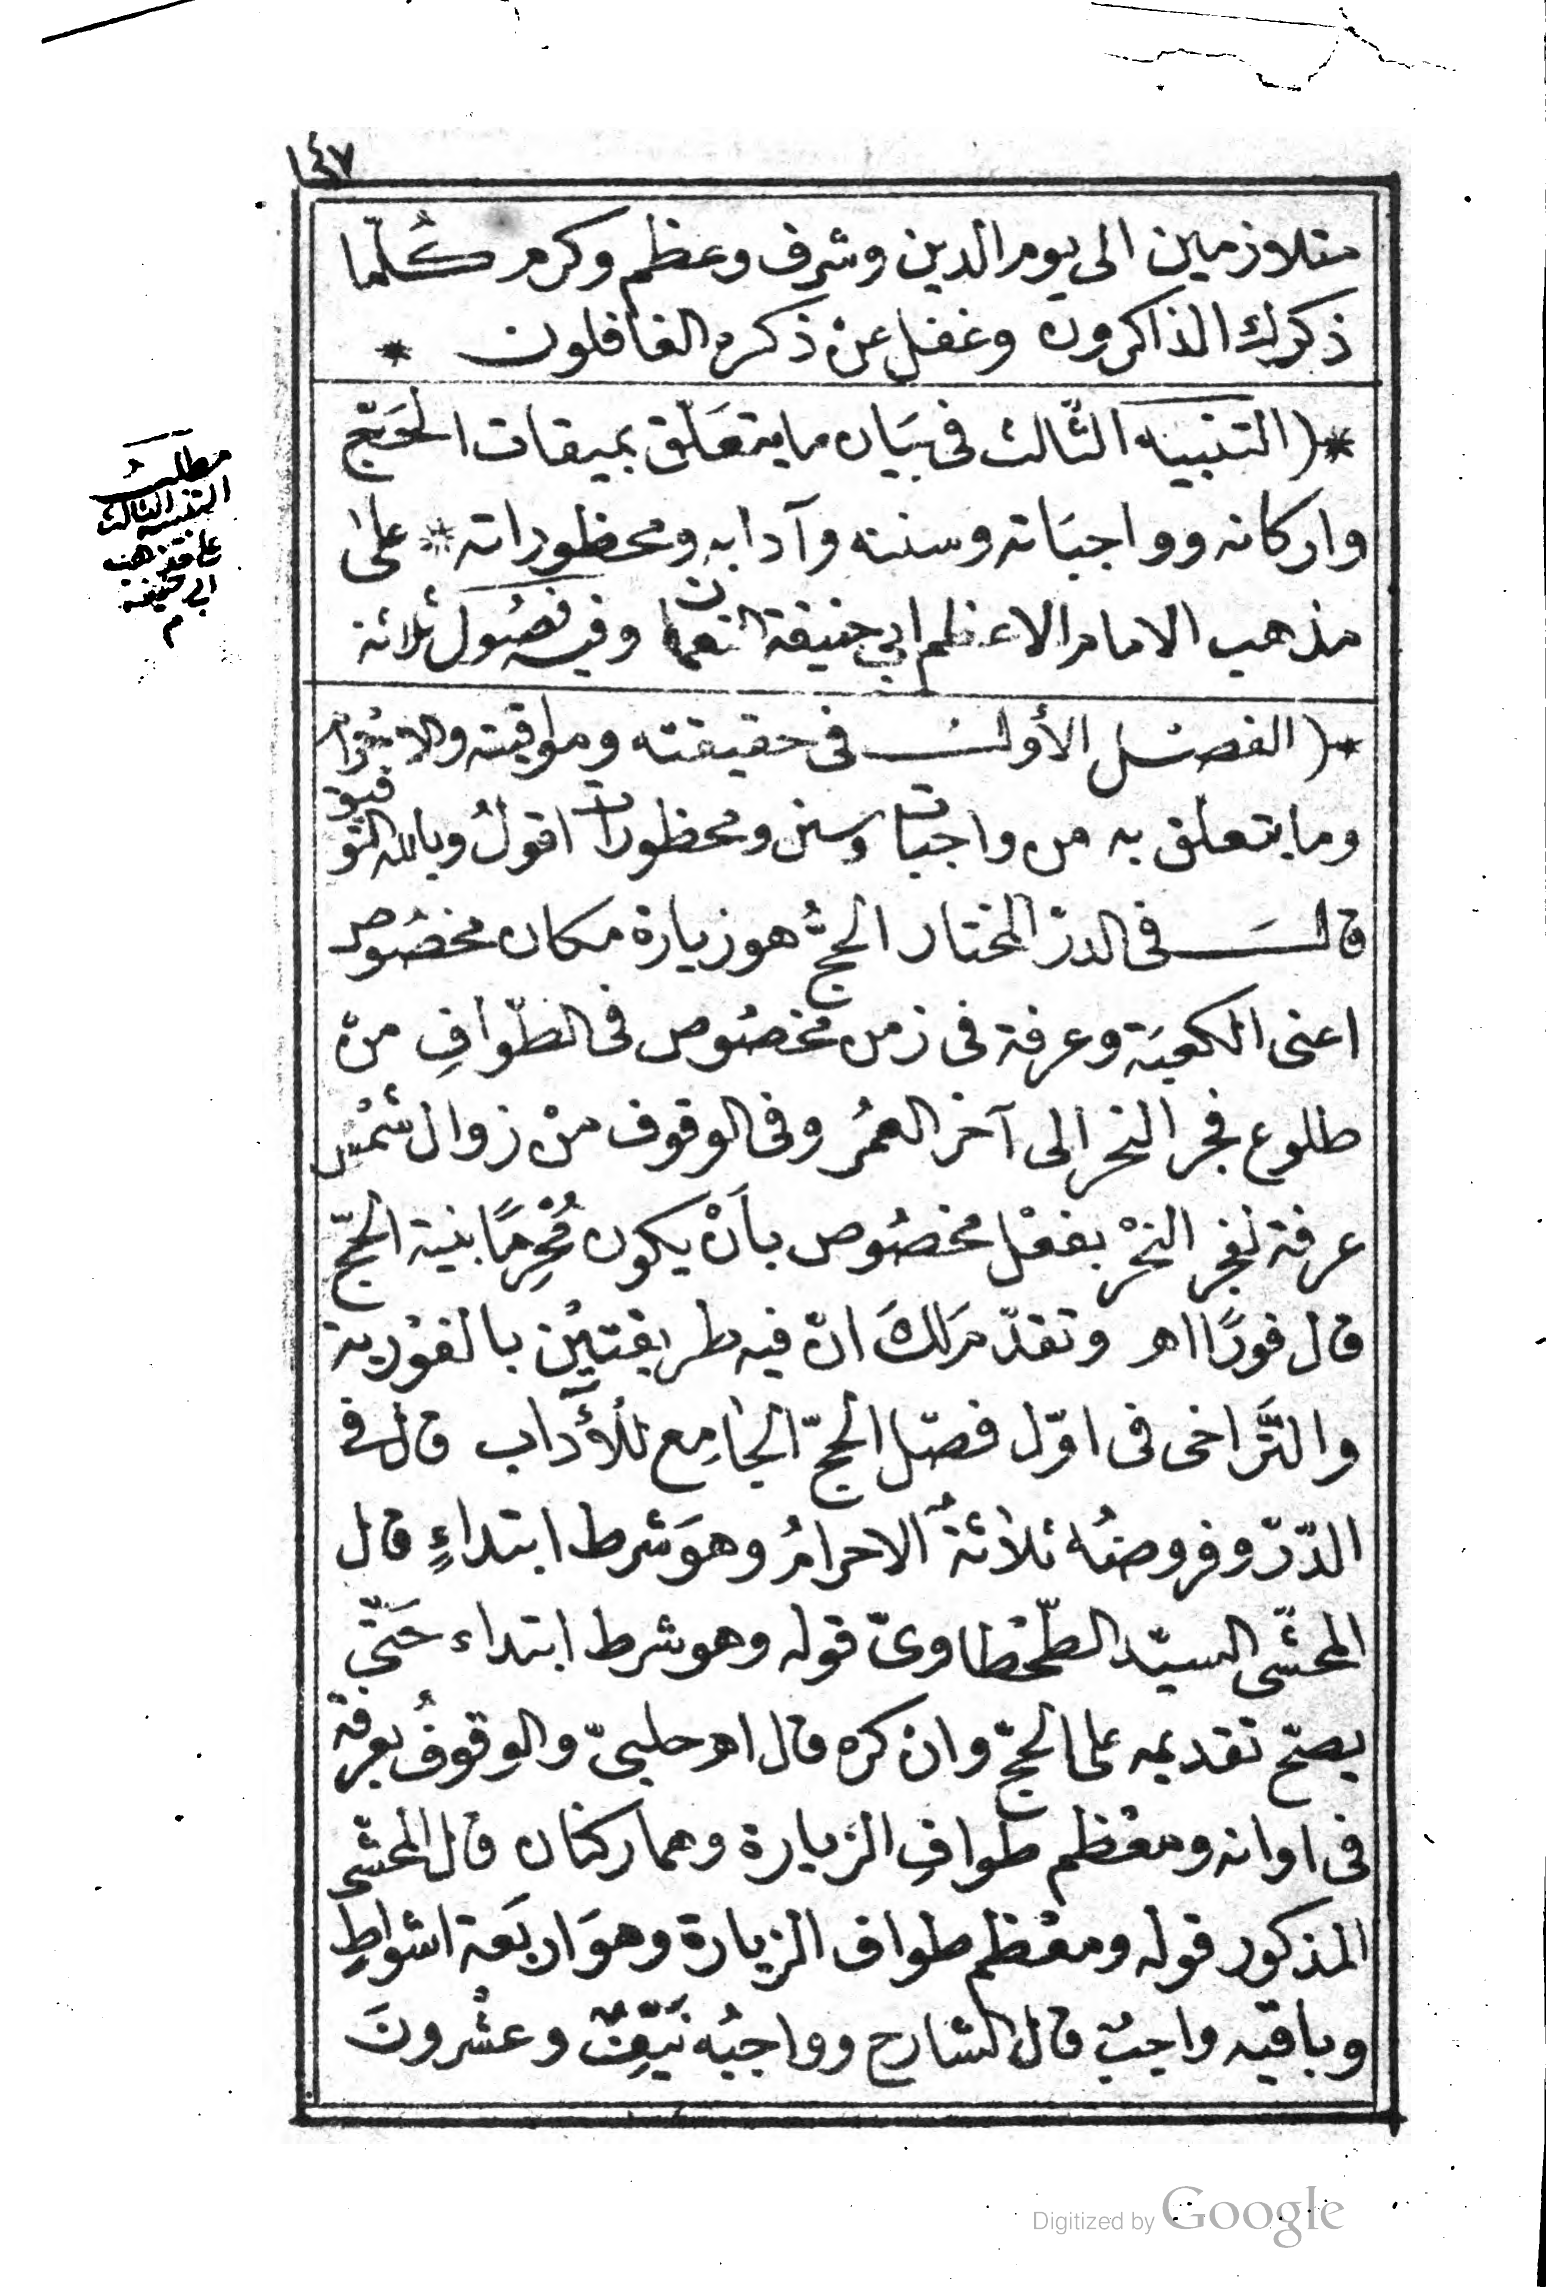 ١٤٧
متلازمين الى يوم الدين وشرف وعظم وكرم كُلّما
ذكرك الذاكرون وغفل عنْ ذكره الغافلون *
*( التنبيه الثّالث فى بيَان ما يتعَلّق بميقات الحَجّ
واركانه وواجبَاته وسننه وآدابه ومحظوراته * علىٰ
مذهب الامام الاعظم ابي حنيفة النعمان وفيه فصُول ثلاثة
مطلبُ
التنبيه الثالث
على مذهب
ابي حنيفة
م
*( الفصْل الأول فى حقيقته ومواقيته والاحْرام
وما يتعلق به من واجبات وسنن ومحظورات اقولُ وبالله التوفيق
قالَ فى الدرّ المختار الحجُّ هو زيارة مكان مخصُوص
اعنى الكعبَة وعرفة فى زمن مخصُوص فى الطّوافِ منْ
طلوع فجر النحر الى آخر العمُر وفى الوقوف منْ زوال شمْس
عرفة لفجر النحْر بفعْل مخصُوص بأَنْ يكون مُحْرِمًا بنية الحجّ
قال فورًا اهـ وتقدّم لكَ انّ فيه طريقتيْن بالفوْرية
والتَّراخى فى اوّل فصْل الحجّ الجامِع للْأٓداب قال فى
الدّرّ وفروضُه ثلاثةٌ الاحرامُ وهوَ شرط ابتداءٍ قال
المحشّى السيّد الطّحْطاوىّ قوله وهو شرط ابتداء حَتّي
يصحّ تقديمه على الحجّ وانْ كره قال اهـ حلبىّ والوقوفُ بعرفة
فى اوانه ومعْظم طوافِ الزيارة وهما ركنان قال المحشّى
المذكور قوله ومعْظم طواف الزيارة وهوَ اربَعة اشواطٍ
وباقيه واجبٌ قال الشارح وواجبُه نَيّفٌ وعشْرونَ
Digitized by Google